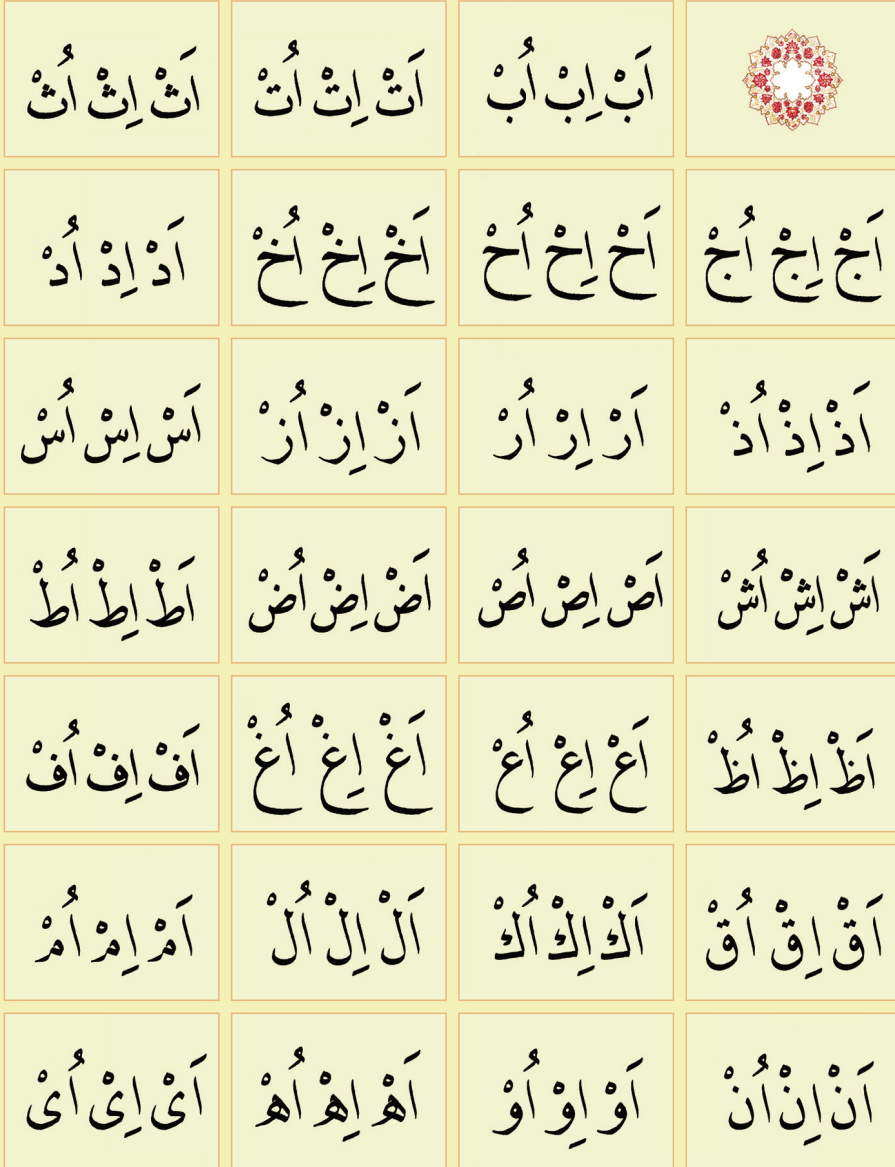 اَبْ اِبْ اُبْ اَتْ اِتْ اُتْ اَثْ اِثْ اُثْ
اَجْ اِجْ اُجْ اَحْ اِحْ اُحْ اَخْ اِخْ اُخْ اَدْ اِدْ اُدْ
اَذْ اِذْ اُذْ اَرْ اِرْ اُرْ اَزْ اِزْ اُزْ اَسْ اِسْ اُسْ
اَشْ اِشْ اُشْ اَصْ اِصْ اُصْ اَضْ اِضْ اُضْ اَطْ اِطْ اُطْ
اَظْ اِظْ اُظْ اَعْ اِعْ اُعْ اَغْ اِغْ اُغْ اَفْ اِفْ اُفْ
اَقْ اِقْ اُقْ اَكْ اِكْ اُكْ اَلْ اِلْ اُلْ اَمْ اِمْ اُمْ
اَنْ اِنْ اُنْ اَوْ اِوْ اُوْ اَهْ اِهْ اُهْ اَىْ اِىْ اُىْ